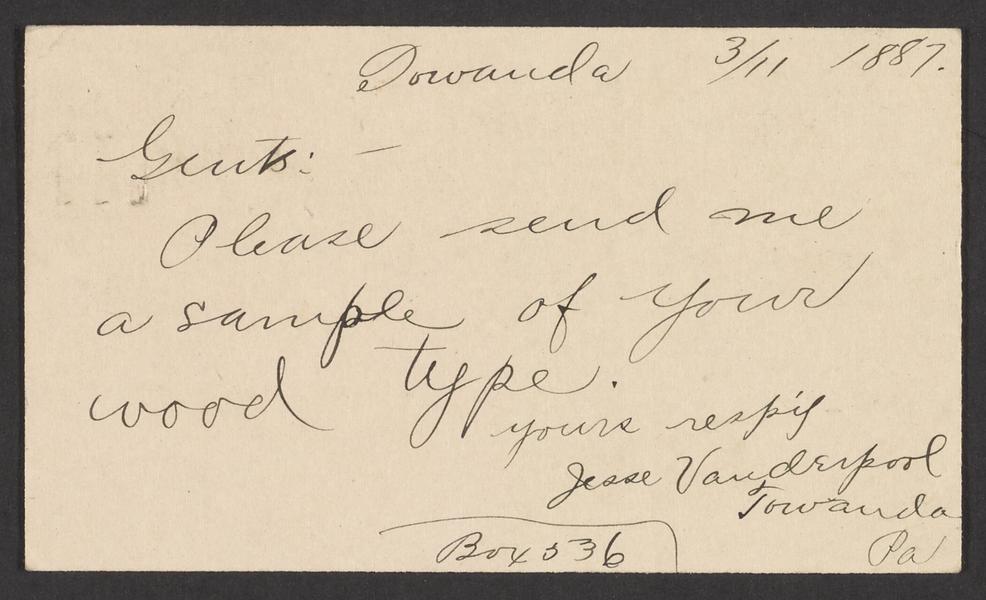 Towanda 3/11 1887.
Gents: —
Please send me
a sample of your
wood type.
yours resp'y
Jesse Vanderpool
Towanda
Pa
Box 536